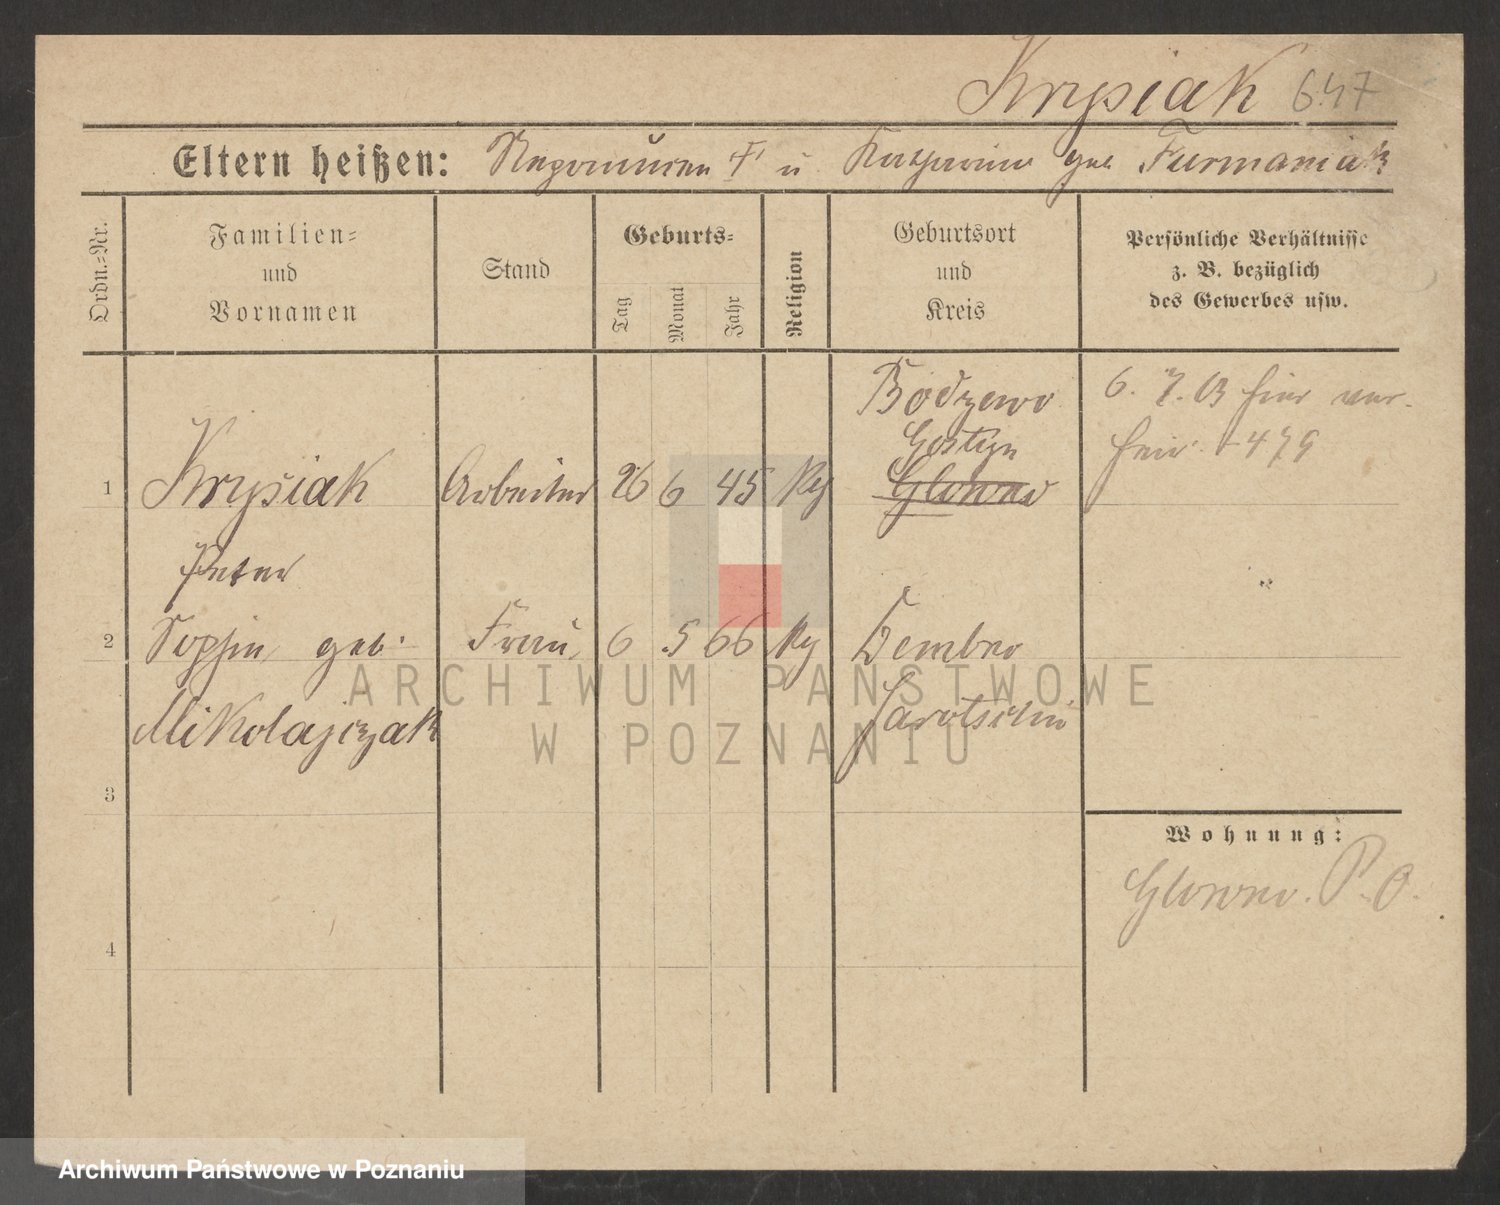 Krysiak 647
Eltern heißen: Nepomucen † u Katharina geb Furmaniak
Ordn.=Nr.
Familien=
und
Vornamen
Stand
Geburts=
Tag
Monat
Jahr
Religion
Geburtsort
und
Kreis
Persönliche Verhältnisse
z. B. bezüglich
des Gewerbes usw.
1 Krysiak Arbeiter 26 6 45 Kg
Peter
Bodzewo
Gostyn
Glowno
6. 7. 03 hier ver-
479
2 Sophie geb. Frau 6 5 66 Kg
Mikolajczak
Dembno
Jarotschin
3
Wohnung:
Glowno. P. O.
4
ARCHIWUM PAŃSTWOWE
W POZNANIU
Archiwum Państwowe w Poznaniu